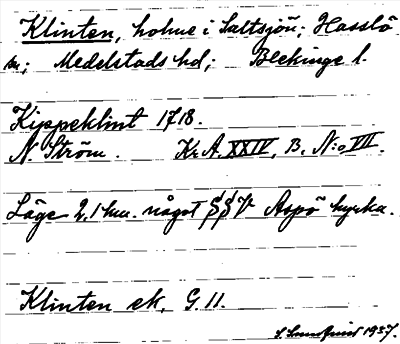 Klinten, holme i Saltsjön; Hasslö
sn; Medelstads hd; Blekinge l.
Kippeklint 1718.
N. Ström. Kr.A. XXIV, B, N:o VII.
Läge 2,1 km. något SSV Aspö kyrka.
Klinten ek, G. 11.
S. Lundquist 1937.